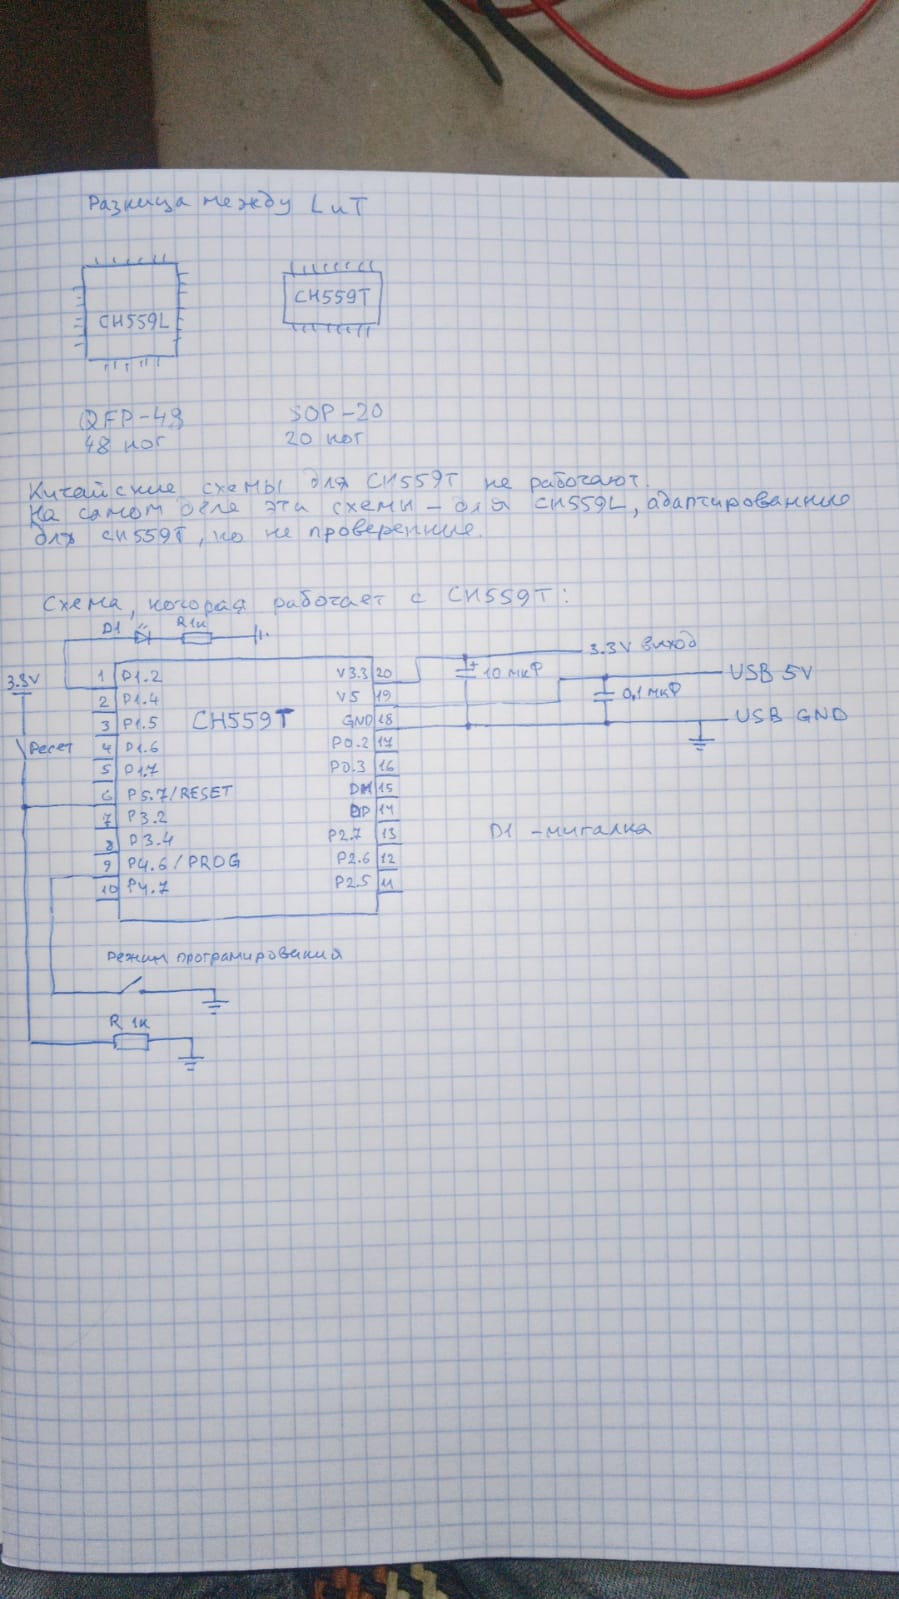 Разница между L и T
CH559L
CH559T
QFP-48
48 ног
SOP-20
20 ног
Китайские схемы для CH559T не работают.
На самом деле эти схемы - для CH559L, адаптированние
для CH559T, но не проверенние.
Схема, которая работает с CH559T:
D1
R1к
3.3V
Ресет
CH559T
1 P1.2
2 P1.4
3 P1.5
4 P1.6
5 P1.7
6 P5.7/RESET
7 P3.2
8 P3.4
9 P4.6/PROG
10 P4.7
V3.3 20
V5 19
GND 18
P0.2 17
P0.3 16
DM 15
DP 14
P2.7 13
P2.6 12
P2.5 11
+ 10 мкФ
3.3V выход
0,1 мкФ
USB 5V
USB GND
D1 - мигалка
Режим програмирования
R 1к